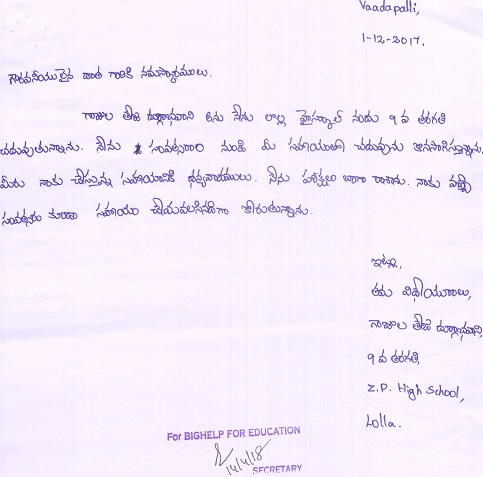 Vaadapalli,
1-12-2017.
గౌరవనీయులైన దాత గారికి నమస్కారములు.
గాజుల తేజ దుర్గాభవాని అను నేను లొల్ల హైస్కూల్ నందు 9 వ తరగతి
చదువుతున్నాను. నేను సంవత్సరం నుండి మీ సహాయంతో చదువును కొనసాగిస్తున్నాను.
మీరు నాకు చేస్తున్న సహాయానికి ధన్యవాదములు. నేను పరీక్షలు బాగా రాశాను. నాకు వచ్చే
సంవత్సరం కూడా సహాయం చేయవలసినదిగా కోరుతున్నాను.
ఇట్లు,
తమ విధేయురాలు,
గాజుల తేజ దుర్గాభవాని,
9 వ తరగతి,
Z.P. High School,
Lolla.
For BIGHELP FOR EDUCATION
14/4/18
SECRETARY